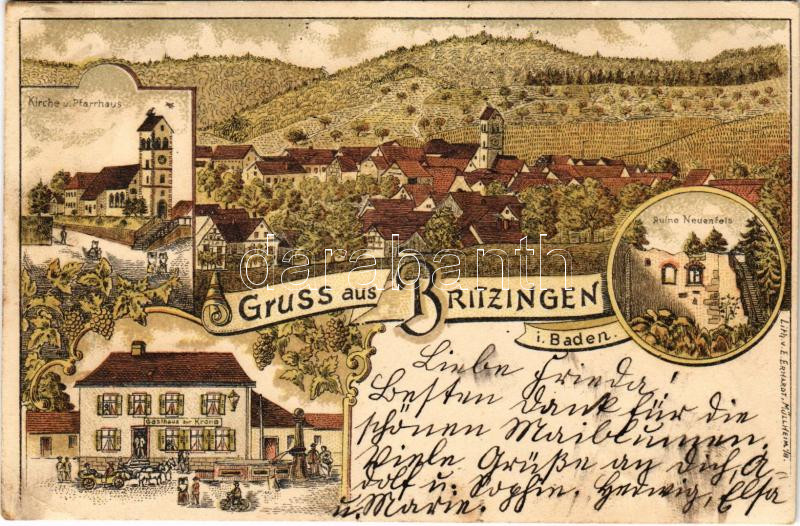 Kirche u. Pfarrhaus
Ruine Neuenfels
darabanth
Gruss aus Britzingen
i. Baden.
Gasthaus zur Krone
Lith. v. E. Erhardt, Müllheim i/B.
Liebe Frieda!
Besten Dank für die
schönen Maiblumen.
Viele Grüße an Dich, A-
dolf u. Sophie. Hedwig, Elsa
u. Marie.